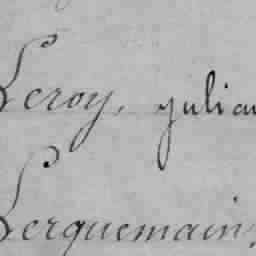 Leroy, julian
Lerquemain,